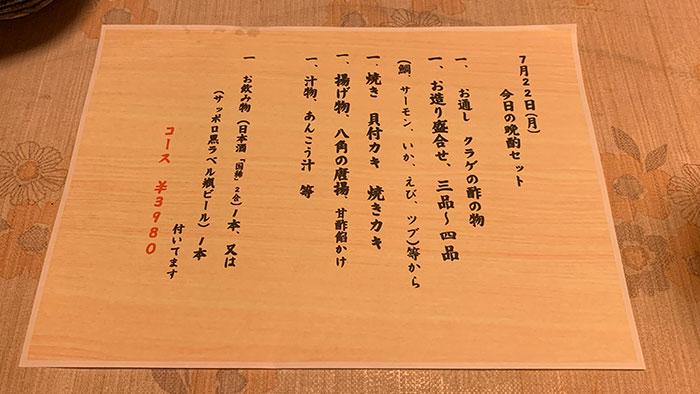 7月22日(月)
今日の晩酌セット
一、お通し クラゲの酢の物
一、お造り盛合せ、三品〜四品
(鯛、サーモン、いか、えび、ツブ)等から
一、焼き 貝付カキ 焼きカキ
一、揚げ物、八角の唐揚、甘酢餡かけ
一、汁物、あんこう汁 等
一 お飲み物(日本酒「国稀」2合)1本、又は
(サッポロ黒ラベル瓶ビール)1本
付いてます
コース ¥3980